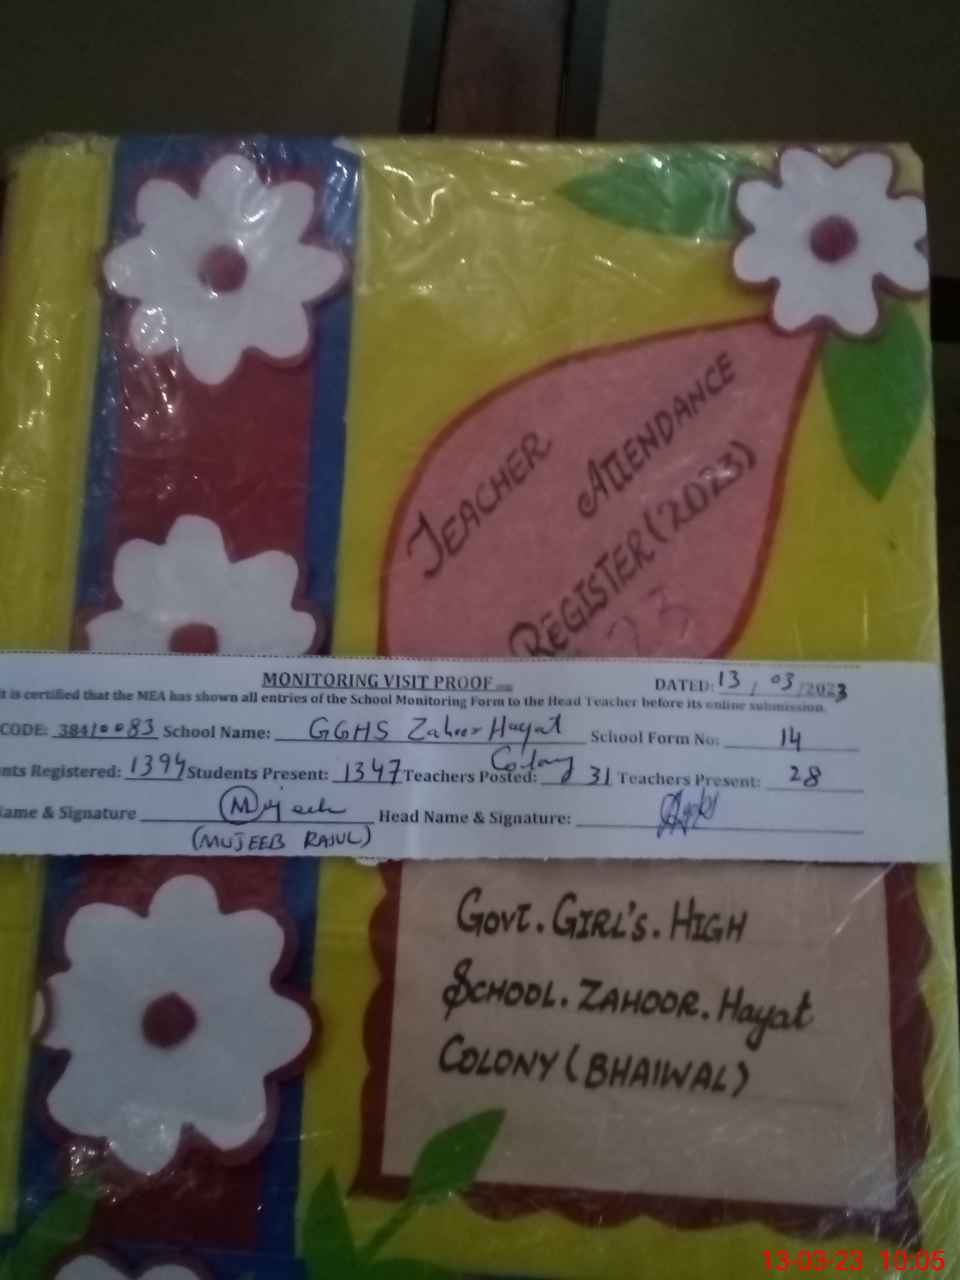 TEACHER
ATTENDANCE
REGISTER (2023)
MONITORING VISIT PROOF
DATED: 13 / 03 /2023
it is certified that the MEA has shown all entries of the School Monitoring Form to the Head Teacher before its online submission.
CODE: 38410083 School Name: GGHS Zahoor Hayat Colony School Form No: 14
nts Registered: 1394 Students Present: 1347 Teachers Posted: 31 Teachers Present: 28
ame & Signature Mujeeb Head Name & Signature:
(MUJEEB RASUL)
GOVT. GIRL'S. HIGH
SCHOOL. ZAHOOR. Hayat
COLONY (BHAIWAL)
13-03-23 10:05